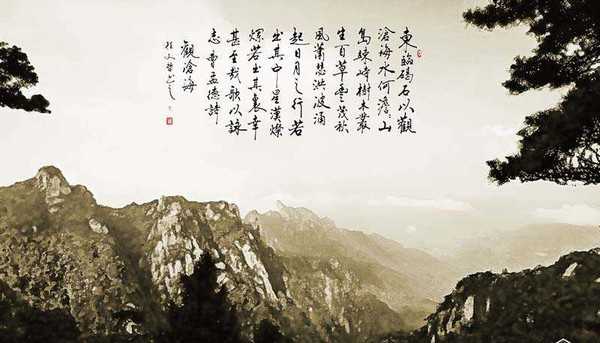 東臨碣石以觀
滄海水何澹澹山
島竦峙樹木叢
生百草豐茂秋
風蕭瑟洪波涌
起日月之行若
出其中星漢燦
爛若出其裏幸
甚至哉歌以詠
志曹孟德詩
觀滄海